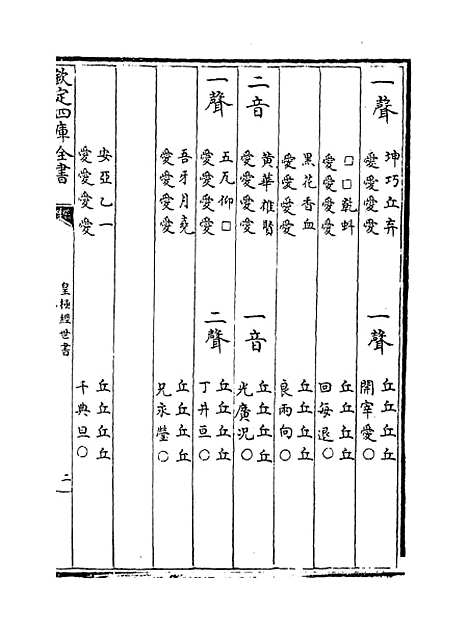 一聲
坤巧丘弃
愛愛愛愛
一聲
丘丘丘丘
開宰愛○
□□乾虯
愛愛愛愛
丘丘丘丘
回每退○
黑花香血
愛愛愛愛
丘丘丘丘
良兩向○
二音
黄華雄賢
愛愛愛愛
一音
丘丘丘丘
光廣況○
一聲
五瓦仰□
愛愛愛愛
二聲
丘丘丘丘
丁井亘○
吾牙月堯
愛愛愛愛
丘丘丘丘
兄永瑩○
安亞乙一
愛愛愛愛
丘丘丘丘
千典旦○
欽定四庫全書
皇極經世書
二